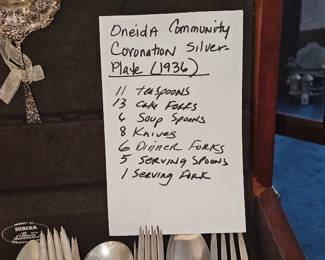 Oneida Community
Coronation Silver-
Plate (1936)
11 teaspoons
13 Cake Forks
6 Soup Spoons
8 Knives
6 Dinner Forks
5 Serving Spoons
1 Serving Fork
EUREKA